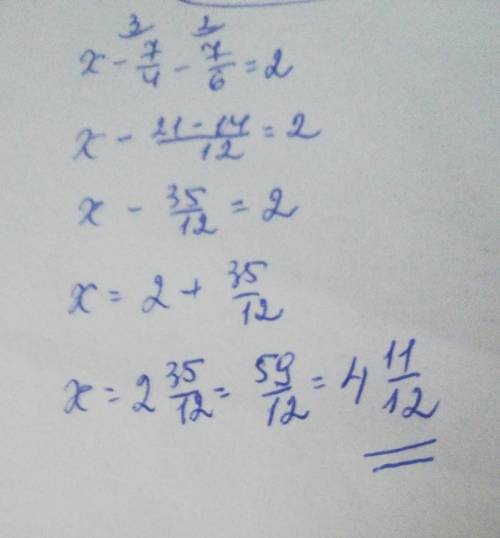 x - 7/4 ³ - 7/6 ² = 2
x - 21-14/12 = 2
x - 35/12 = 2
x = 2 + 35/12
x = 2 35/12 = 59/12 = 4 11/12